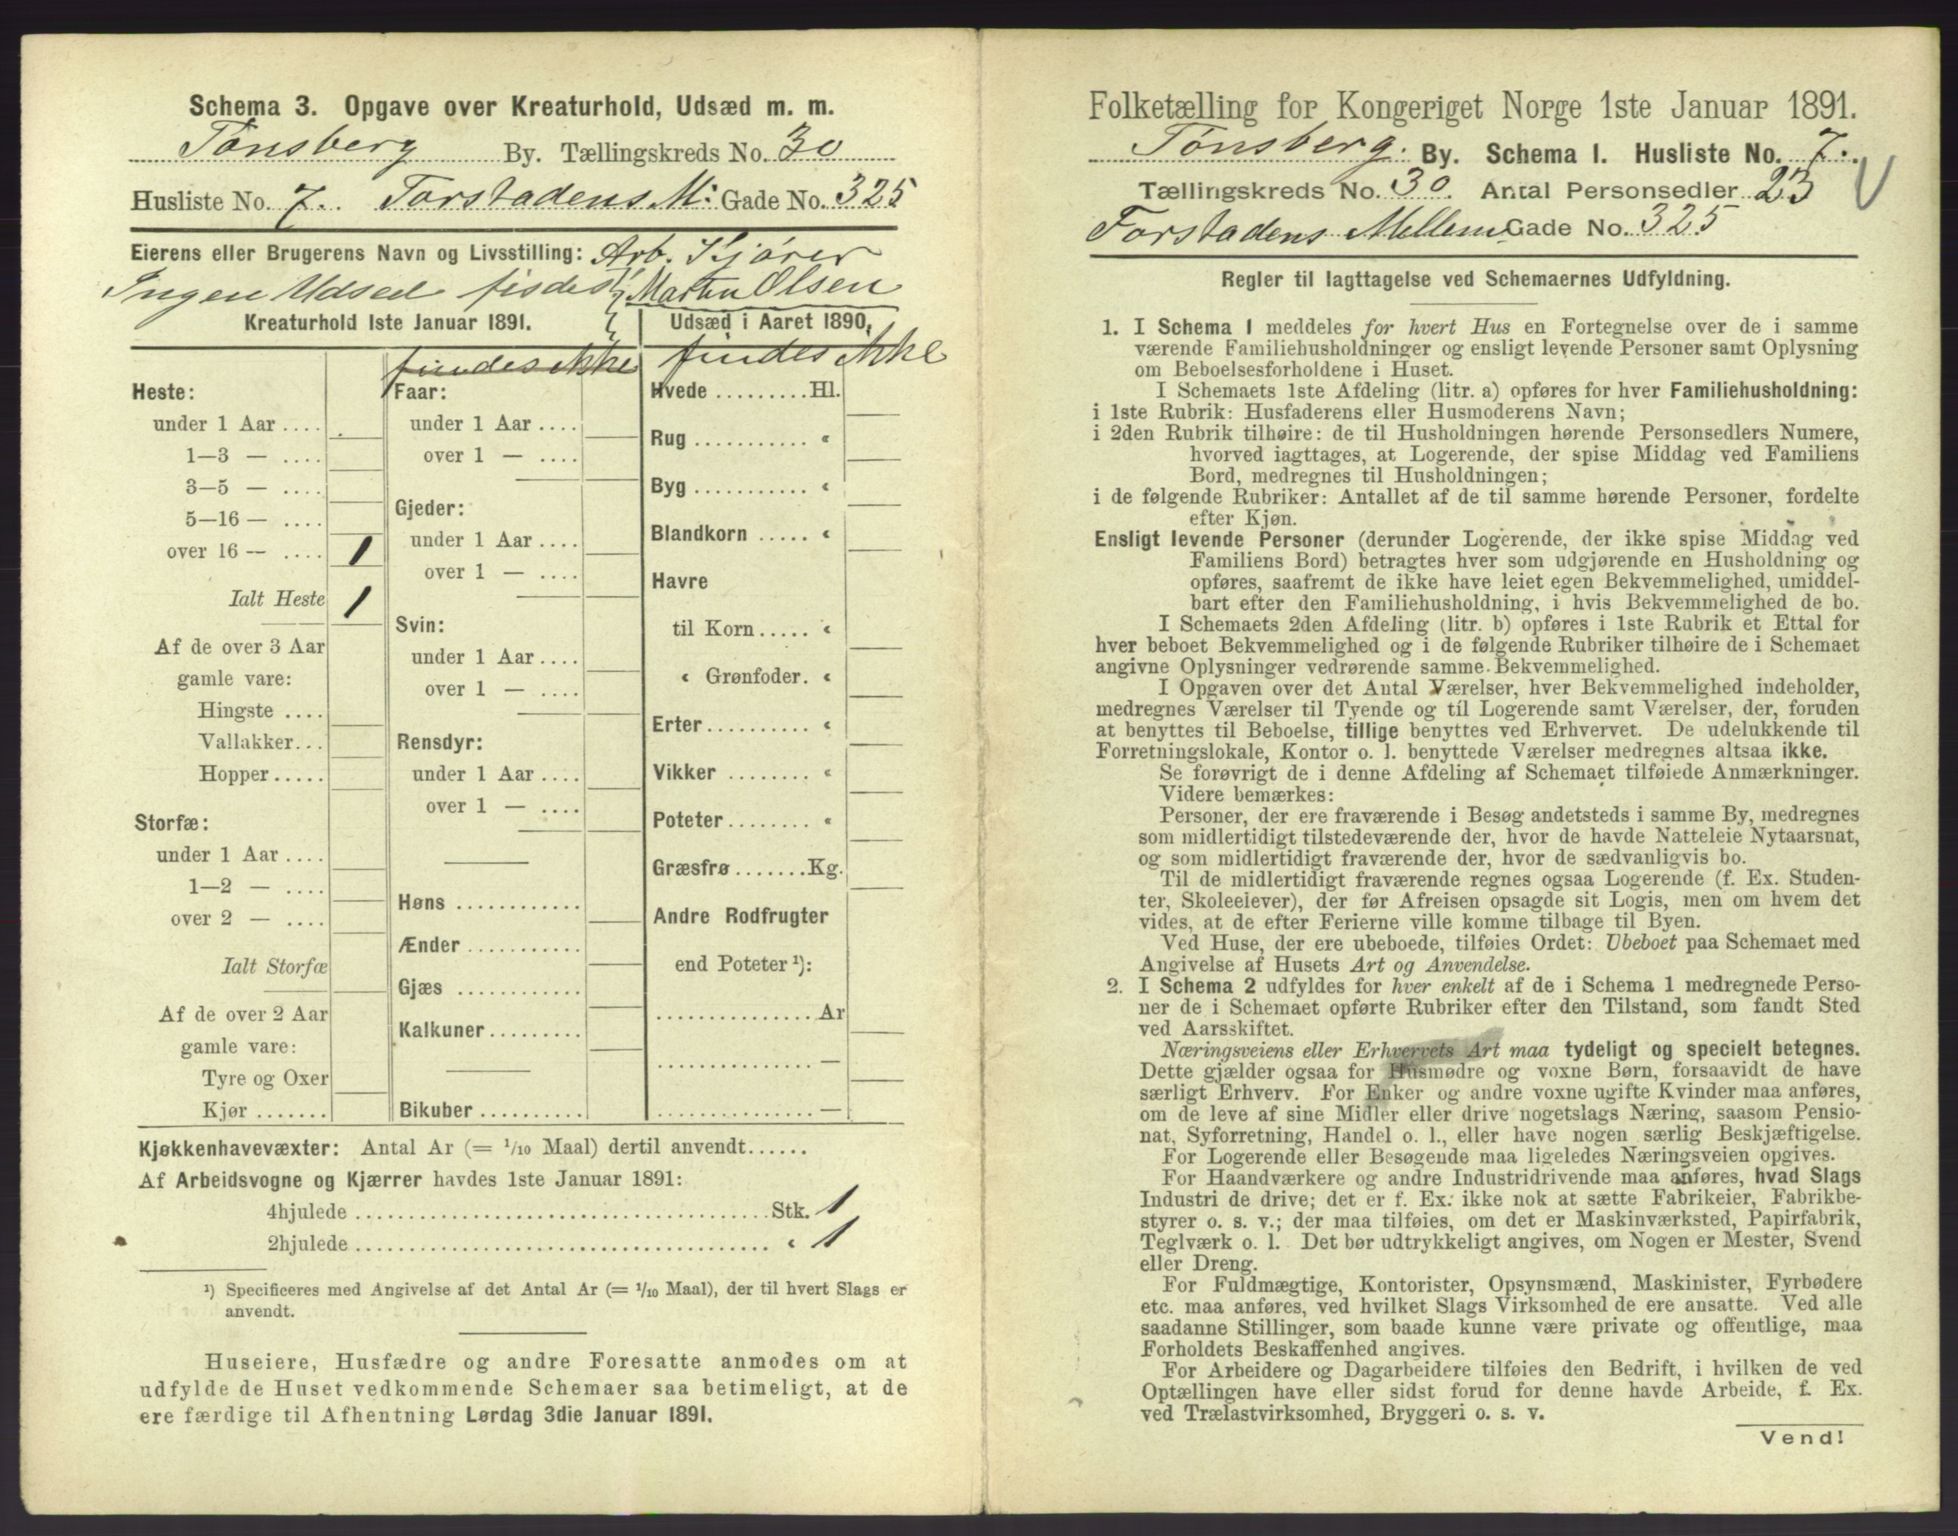 Schema 3. Opgave over Kreaturhold, Udsæd m. m.
Tønsberg By. Tællingskreds No. 30
Husliste No. 7. Forstadens M: Gade No. 325
Eierens eller Brugerens Navn og Livsstilling: Arb. Kjører
Ingen Udsed findes Martin Olsen
Kreaturhold 1ste Januar 1891.
Heste:
under 1 Aar ....
1—3 — ....
3—5 — ....
5—16 — ....
over 16 — .... 1
Ialt Heste 1
Af de over 3 Aar
gamle vare:
Hingste ....
Vallakker...
Hopper.....
Storfæ:
under 1 Aar ....
1—2 — ....
over 2 — ....
Ialt Storfæ
Af de over 2 Aar
gamle vare:
Tyre og Oxer
Kjør .......
findes ikke
Faar:
under 1 Aar ....
over 1 — ....
Gjeder:
under 1 Aar ....
over 1 — ....
Svin:
under 1 Aar ....
over 1 — ....
Rensdyr:
under 1 Aar ....
over 1 — ....
Høns ............
Ænder ...........
Gjæs ............
Kalkuner.........
Bikuber ..........
Udsæd i Aaret 1890.
findes ikke
Hvede .........Hl.
Rug ........... "
Byg ........... "
Blandkorn ..... "
Havre
til Korn..... "
" Grønfoder. "
Erter.......... "
Vikker ........ "
Poteter........ "
Græsfrø .......Kg.
Andre Rodfrugter
end Poteter ¹):
...............Ar
............... —
............... —
Kjøkkenhavevæxter: Antal Ar (= 1/10 Maal) dertil anvendt......
Af Arbeidsvogne og Kjærrer havdes 1ste Januar 1891:
4hjulede ........................................Stk. 1
2hjulede ........................................ " 1
¹) Specificeres med Angivelse af det Antal Ar (= 1/10 Maal), der til hvert Slags er
anvendt.
Huseiere, Husfædre og andre Foresatte anmodes om at
udfylde de Huset vedkommende Schemaer saa betimeligt, at de
ere færdige til Afhentning Lørdag 3die Januar 1891.
Folketælling for Kongeriget Norge 1ste Januar 1891.
Tønsberg. By. Schema I. Husliste No. 7.
Tællingskreds No. 30. Antal Personsedler 23
Forstadens Mellem Gade No. 325
Regler til Iagttagelse ved Schemaernes Udfyldning.
1. I Schema I meddeles for hvert Hus en Fortegnelse over de i samme
værende Familiehusholdninger og ensligt levende Personer samt Oplysning
om Beboelsesforholdene i Huset.
I Schemaets 1ste Afdeling (litr. a) opføres for hver Familiehusholdning:
i 1ste Rubrik: Husfaderens eller Husmoderens Navn;
i 2den Rubrik tilhøire: de til Husholdningen hørende Personsedlers Numere,
hvorved iagttages, at Logerende, der spise Middag ved Familiens
Bord, medregnes til Husholdningen;
i de følgende Rubriker: Antallet af de til samme hørende Personer, fordelte
efter Kjøn.
Ensligt levende Personer (derunder Logerende, der ikke spise Middag ved
Familiens Bord) betragtes hver som udgjørende en Husholdning og
opføres, saafremt de ikke have leiet egen Bekvemmelighed, umiddel-
bart efter den Familiehusholdning, i hvis Bekvemmelighed de bo.
I Schemaets 2den Afdeling (litr. b) opføres i 1ste Rubrik et Ettal for
hver beboet Bekvemmelighed og i de følgende Rubriker tilhøire de i Schemaet
angivne Oplysninger vedrørende samme Bekvemmelighed.
I Opgaven over det Antal Værelser, hver Bekvemmelighed indeholder,
medregnes Værelser til Tyende og til Logerende samt Værelser, der, foruden
at benyttes til Beboelse, tillige benyttes ved Erhvervet. De udelukkende til
Forretningslokale, Kontor o. l. benyttede Værelser medregnes altsaa ikke.
Se forøvrigt de i denne Afdeling af Schemaet tilføiede Anmærkninger.
Videre bemærkes:
Personer, der ere fraværende i Besøg andetsteds i samme By, medregnes
som midlertidigt tilstedeværende der, hvor de havde Natteleie Nytaarsnat,
og som midlertidigt fraværende der, hvor de sædvanligvis bo.
Til de midlertidigt fraværende regnes ogsaa Logerende (f. Ex. Studen-
ter, Skoleelever), der før Afreisen opsagde sit Logis, men om hvem det
vides, at de efter Ferierne ville komme tilbage til Byen.
Ved Huse, der ere ubeboede, tilføies Ordet: Ubeboet paa Schemaet med
Angivelse af Husets Art og Anvendelse.
2. I Schema 2 udfyldes for hver enkelt af de i Schema 1 medregnede Perso-
ner de i Schemaet opførte Rubriker efter den Tilstand, som fandt Sted
ved Aarsskiftet.
Næringsveiens eller Erhvervets Art maa tydeligt og specielt betegnes.
Dette gjælder ogsaa for Husmødre og voxne Børn, forsaavidt de have
særligt Erhverv. For Enker og andre voxne ugifte Kvinder maa anføres,
om de leve af sine Midler eller drive nogetslags Næring, saasom Pensio-
nat, Syforretning, Handel o. l., eller have nogen særlig Beskjæftigelse.
For Logerende eller Besøgende maa ligeledes Næringsveien opgives.
For Haandværkere og andre Industridrivende maa anføres, hvad Slags
Industri de drive; det er f. Ex. ikke nok at sætte Fabrikeier, Fabrikbe-
styrer o. s. v.; der maa tilføies, om det er Maskinværksted, Papirfabrik,
Teglværk o. l. Det bør udtrykkeligt angives, om Nogen er Mester, Svend
eller Dreng.
For Fuldmægtige, Kontorister, Opsynsmænd, Maskinister, Fyrbødere
etc. maa anføres, ved hvilket Slags Virksomhed de ere ansatte. Ved alle
saadanne Stillinger, som baade kunne være private og offentlige, maa
Forholdets Beskaffenhed angives.
For Arbeidere og Dagarbeidere tilføies den Bedrift, i hvilken de ved
Optællingen have eller sidst forud for denne havde Arbeide, f. Ex.
ved Trælastvirksomhed, Bryggeri o. s. v.
Vend!